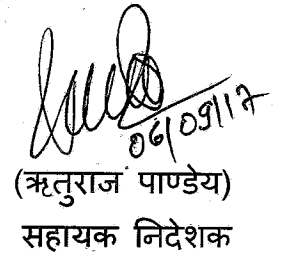 06/09/17
(ऋतुराज पाण्डेय)
सहायक निदेशक